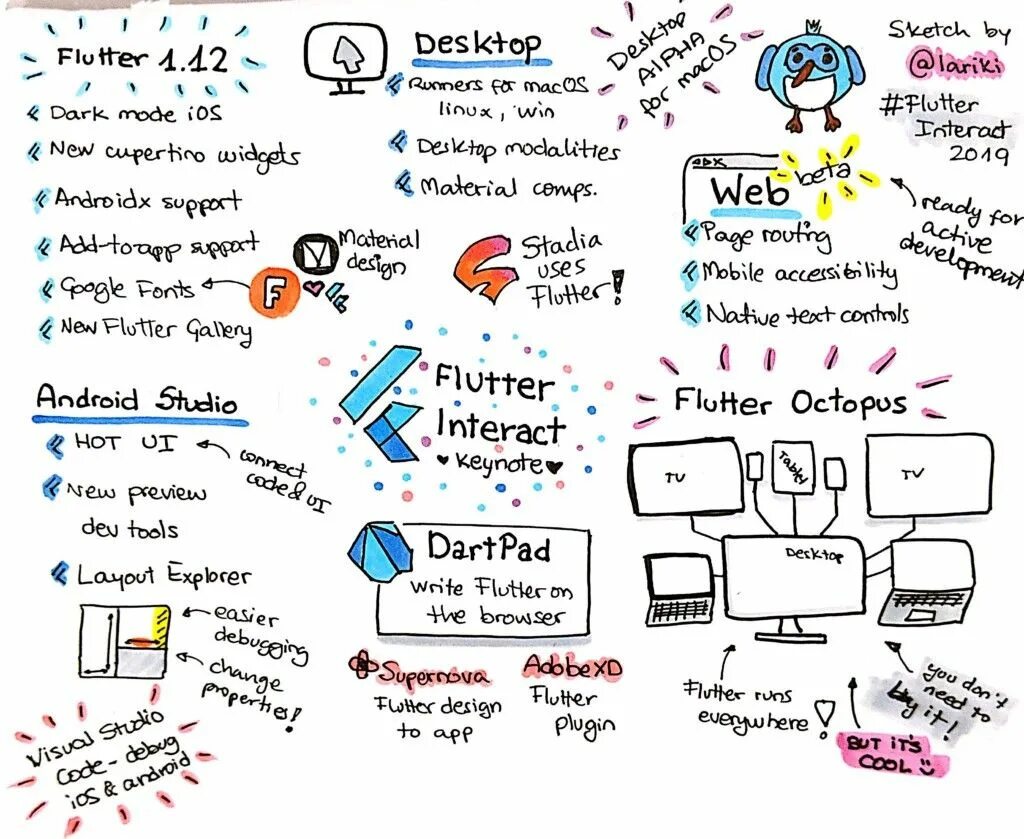 Flutter 1.12
Dark mode iOS
New cupertino widgets
Androidx support
Add-to-app support
Google Fonts
New Flutter Gallery
Material
design
F
Desktop
Runners for macOS
linux, win
Desktop modalities
Material comps.
Desktop
AlPHA
for macOS
Stadia
uses
Flutter!
Sketch by
@lariki
#Flutter
Interact
2019
Web
beta
ready for
active
development
Page routing
Mobile accessibility
Native text controls
Android Studio
HOT UI
connect
code & UI
New preview
dev tools
Layout Explorer
easier
debugging
change
properties!
Visual Studio
Code - debug
iOS & android
Flutter
Interact
♥ Keynote ♥
DartPad
write Flutter on
the browser
Supernova
Flutter design
to app
AdobeXD
Flutter
plugin
Flutter Octopus
TV
Tablet
TV
Desktop
Flutter runs
everywhere!
you don't
need to
buy it!
BUT IT'S
COOL